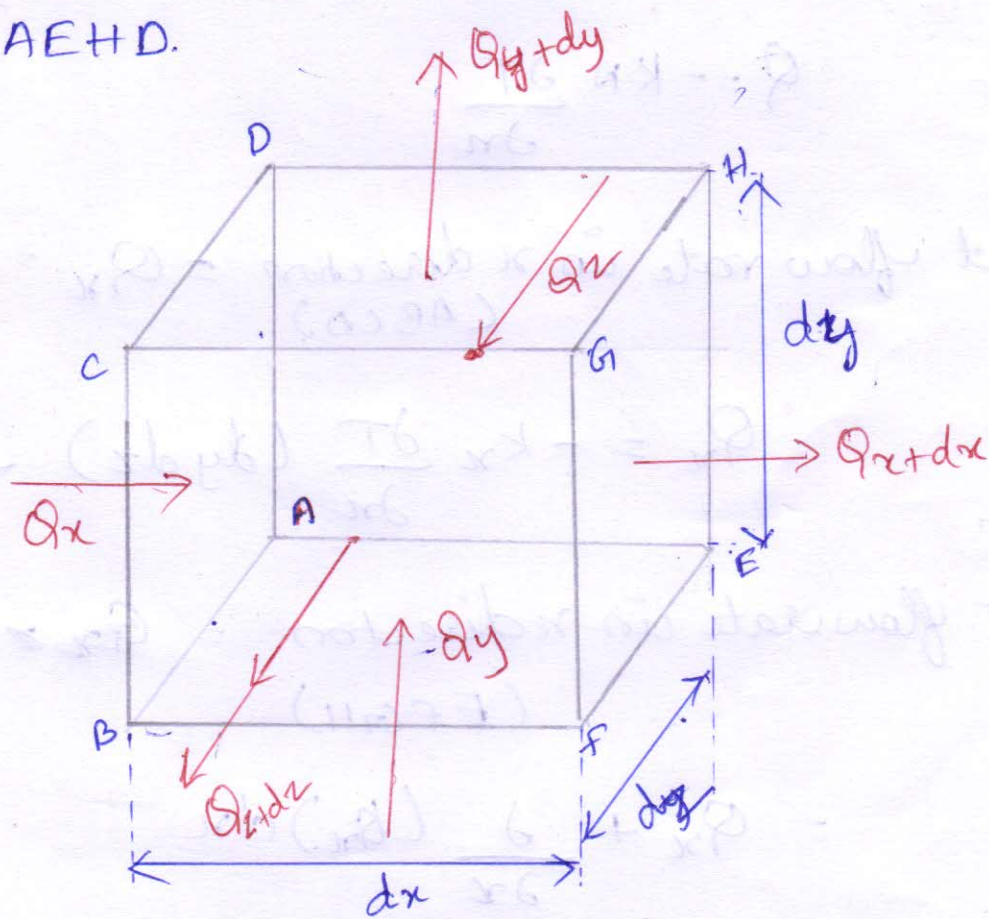 AEHD.
Qy+dy
D
H
Qz
C
G
dy
Qx+dx
Qx
A
E
Qy
B
F
Qz+dz
dz
dx